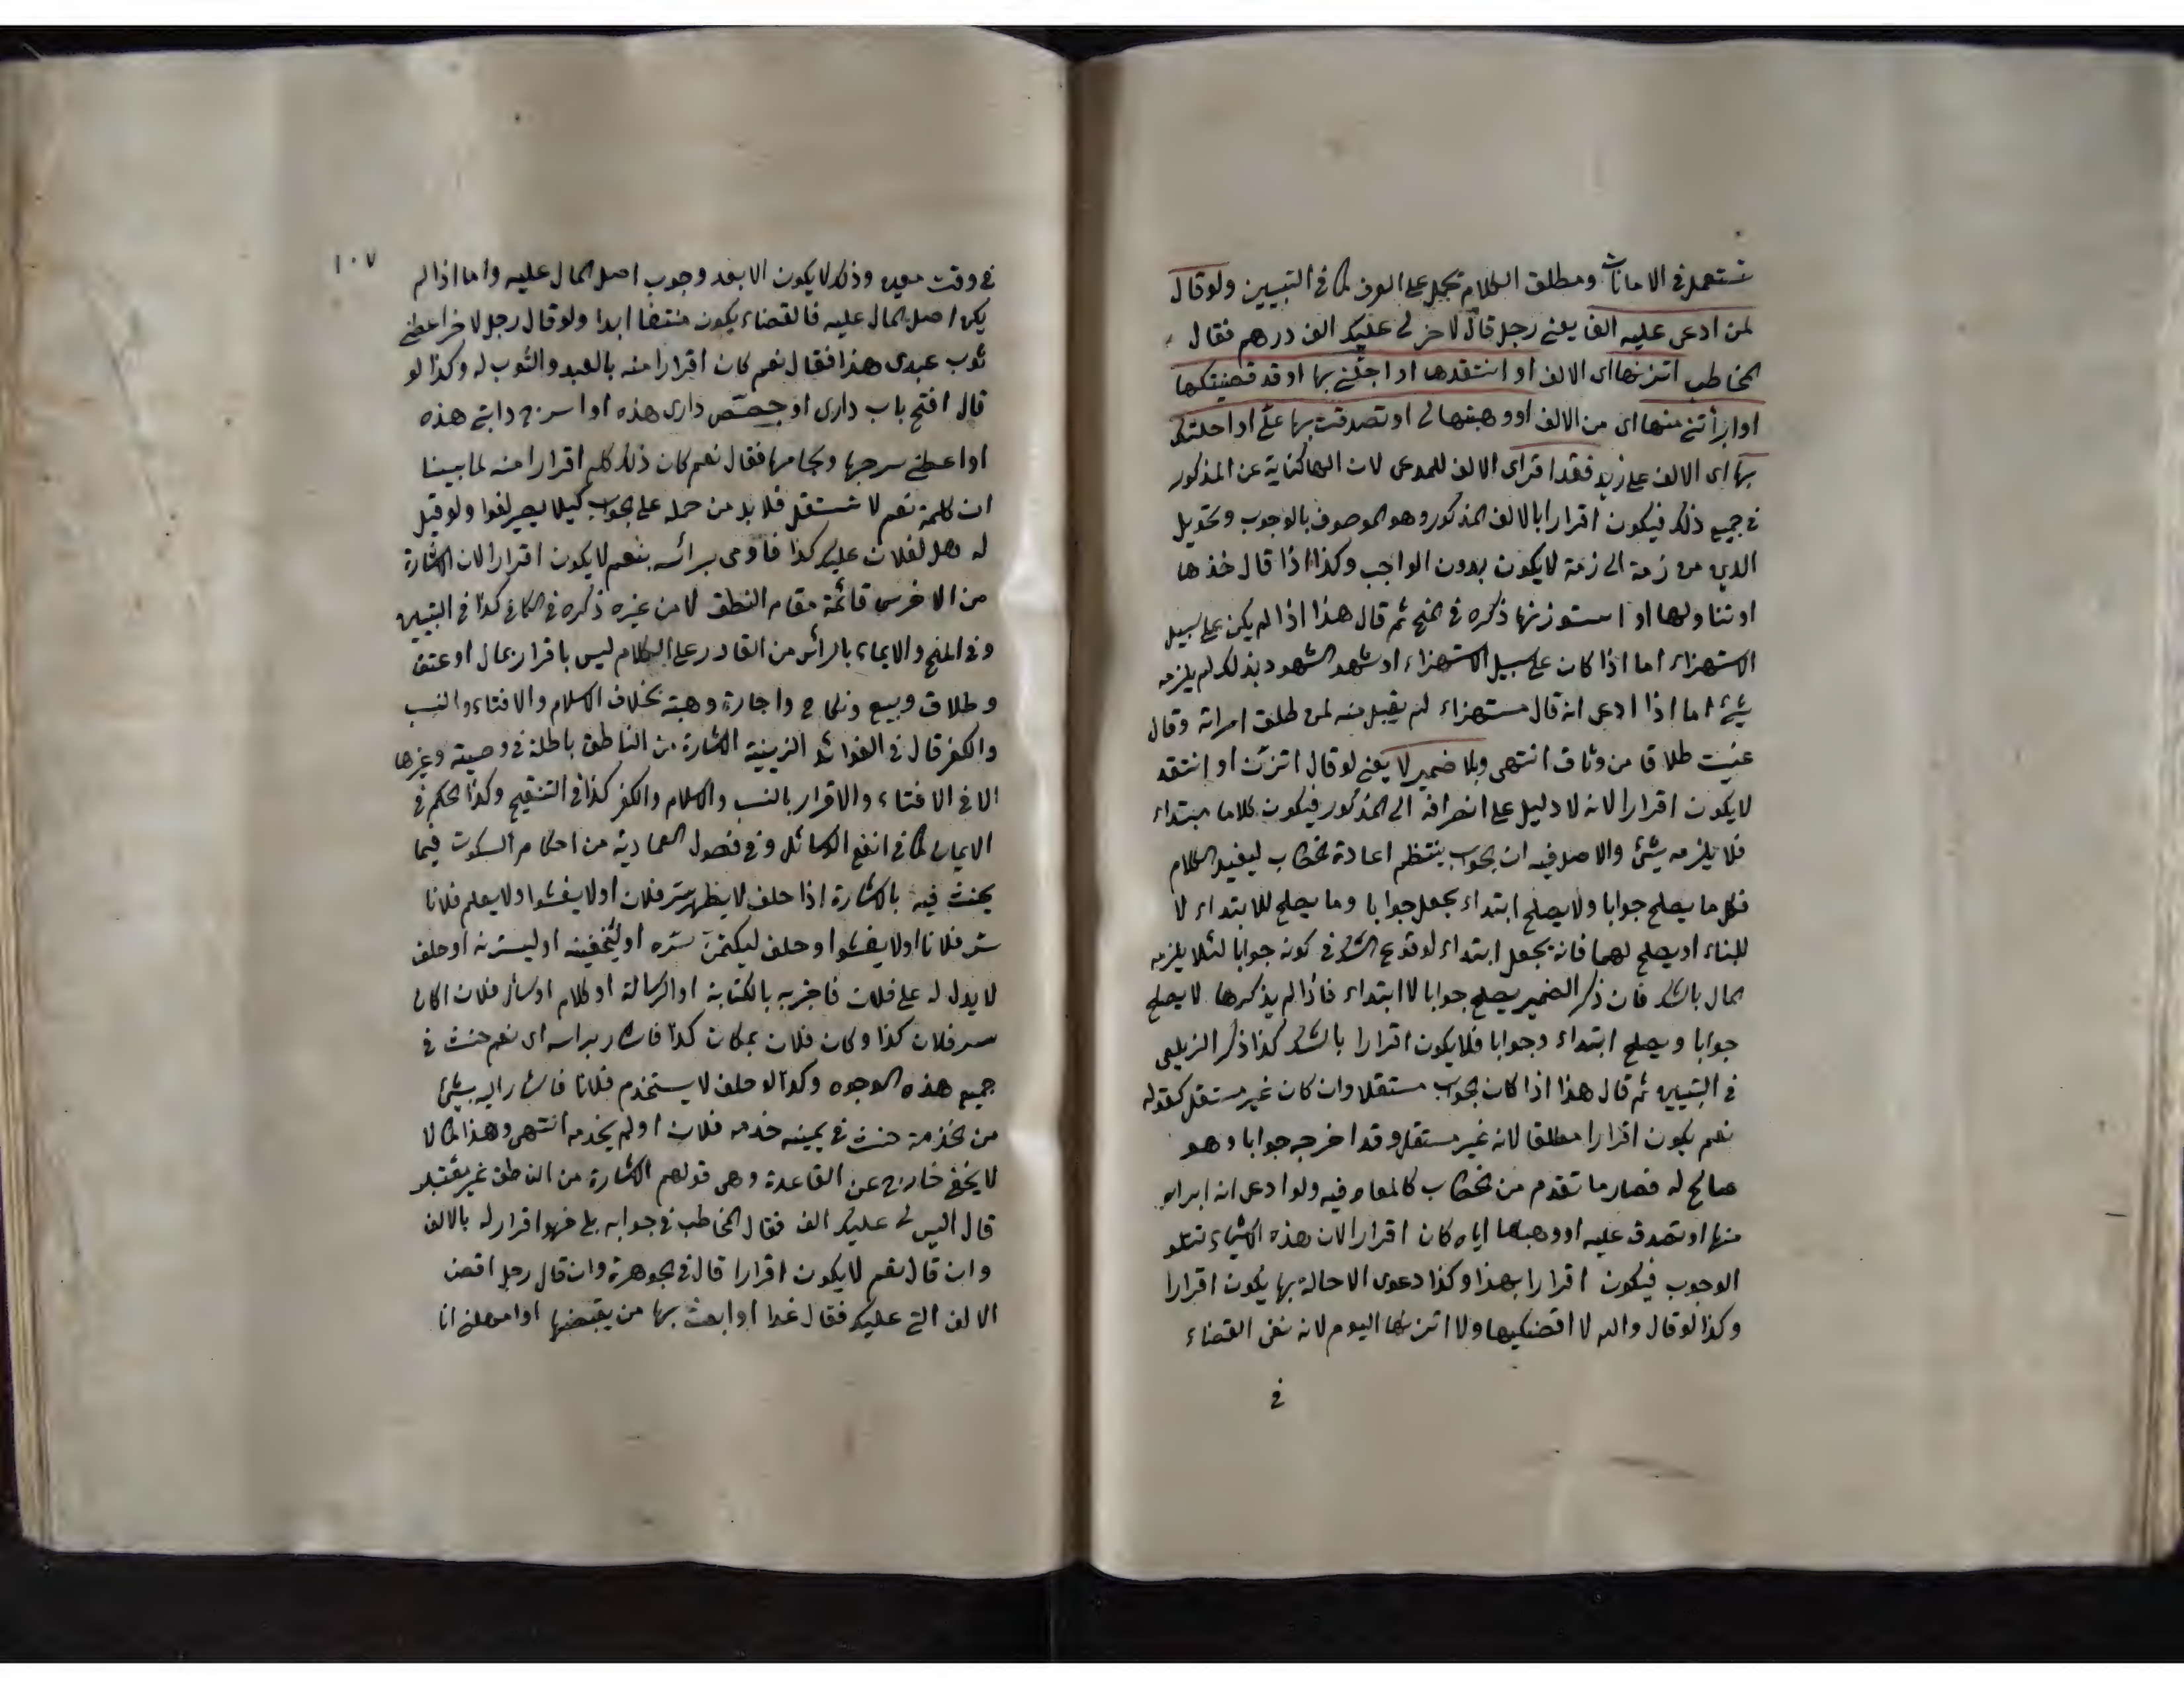 تستعمل في الامانات ومطلق الكلام يحمل على العرف كما في التبيين ولو قال
لمن ادعى عليه الف يعني رجل قال لاخر لي عليك الف درهم فقال
المخاطب اتزنها اى الالف او انتقدها او اجلني بها او قد قضيتكها
او ابرأتني منها اى من الالف او وهبتها لي او تصدقت بها علي او احلتك
بها اى الالف على زيد فقد اقر اى الالف للمدعى لان الها كناية عن المذكور
في جميع ذلك فيكون اقرارا بالالف المذكور وهو الموصوف بالوجوب وتحويل
الدين من ذمة الى ذمة لا يكون بدون الواجب وكذا اذا قال خذها
او تناولها او استوزنها ذكره في المنح ثم قال هذا اذا لم يكن على سبيل
الاستهزاء اما اذا كان على سبيل الاستهزاء او شهد الشهود بذلك لم يلزمه
شيئ اما اذا ادعى انه قال مستهزاء لم يقبل منه لمن طلق امراته وقال
عنيت طلاقا من وثاق انتهى وبلا ضمير لا يعني لو قال اتزن او انتقد
لا يكون اقرارا لانه لا دليل على انصرافه الى المذكور فيكون كلاما مبتداء
فلا يلزمه شيئ والاصل فيه ان الجواب ينتظم اعادة الخطاب ليفيد الكلام
فكل ما يصلح جوابا ولا يصلح ابتداء يجعل جوابا وما يصلح للابتداء لا
للبناء او يصلح لهما فانه يجعل ابتداء لوقوع الشك في كونه جوابا لئلا يلزمه
المال بالشك فان ذكر الضمير يصلح جوابا لا ابتداء فاذا لم يذكرها لا يصلح
جوابا ويصلح ابتداء وجوابا فلا يكون اقرارا بالشك كذا ذكر الزيلعى
في التبيين ثم قال هذا اذا كان الجواب مستقلا وان كان غير مستقل كقوله
نعم يكون اقرارا مطلقا لانه غير مستقل وقد اخرجه جوابا وهو
صالح له فصار ما تقدم من الخطاب كالمعاد فيه ولو ادعى انه ابراه
منها او تصدق عليه او وهبها اياه كان اقرارا لان هذه الاشياء تتلو
الوجوب فيكون اقرارا بهذا وكذا دعوى الاحالة بها يكون اقرارا
وكذا لو قال والله لا اقضيكها ولا اتزنها اليوم لانه نفى القضاء
في
١٠٧
في وقت معين وذلك لا يكون الا بعد وجوب اصل المال عليه واما اذا لم
يكن اصل المال عليه فالقضاء يكون منتفا ابدا ولو قال رجل لاخر اعطني
ثوب عبدى هذا فقال نعم كان اقرارا منه بالعبد والثوب له وكذا لو
قال افتح باب دارى او جصص دارى هذه او اسرج دابتي هذه
او اعطني سرجها ولجامها فقال نعم كان ذلك كله اقرارا منه لما بينا
ان كلمة نعم لا تستقل فلا بد من حمله على الجواب كيلا يصير لغوا ولو قيل
له هل لفلان عليك كذا فاومى برائسه بنعم لا يكون اقرارا لان الاشارة
من الاخرس قائمة مقام النطق لا من غيره ذكره في الكافي كذا في التبيين
وفي المنح والايماء بالرأس من القادر على الكلام ليس باقرار بمال او عتق
وطلاق وبيع ونكاح واجارة وهبة بخلاف الاسلام والافتاء والنسب
والكفر قال في الفوائد الزينية الاشارة من الناطق باطلة في وصية وغيرها
الا في الافتاء والاقرار بالنسب والاسلام والكفر كذا في التنقيح وكذا الحكم في
الايمان كما في انفع الوسائل وفي فصول العمادية من احكام السكوت فيما
يحنث فيه بالاشارة اذا حلف لا يظهر سر فلان اولا يفشوا ولا يعلم فلانا
سر فلانا اولا يفشوا وحلف ليكتمن سره او ليخفينه او ليسترنه او حلف
لا يدل له على فلان فاخبر به بالكتابة او الرسالة او كلام او سأل فلان اكان
سر فلان كذا وكان فلان بمكان كذا فاشار براسه اى نعم حنث في
جميع هذه الوجوه وكذا لو حلف لا يستخدم فلانا فاشار اليه بشيئ
من الخدمة حنث في يمينه خدمه فلان اولم يخدمه انتهى وهذا كما لا
لا يخفى خارج عن القاعدة وهى قولهم الاشارة من الناطق غير
قال اليس لي عليك الف فقال المخاطب في جوابه بلى فهو اقرار له بالالف
وان قال نعم لا يكون اقرارا قال في الجوهرة وان قال رجل اقض
الالف التي عليك فقال غدا او ابعث بها من يقبضها او امهلني انا